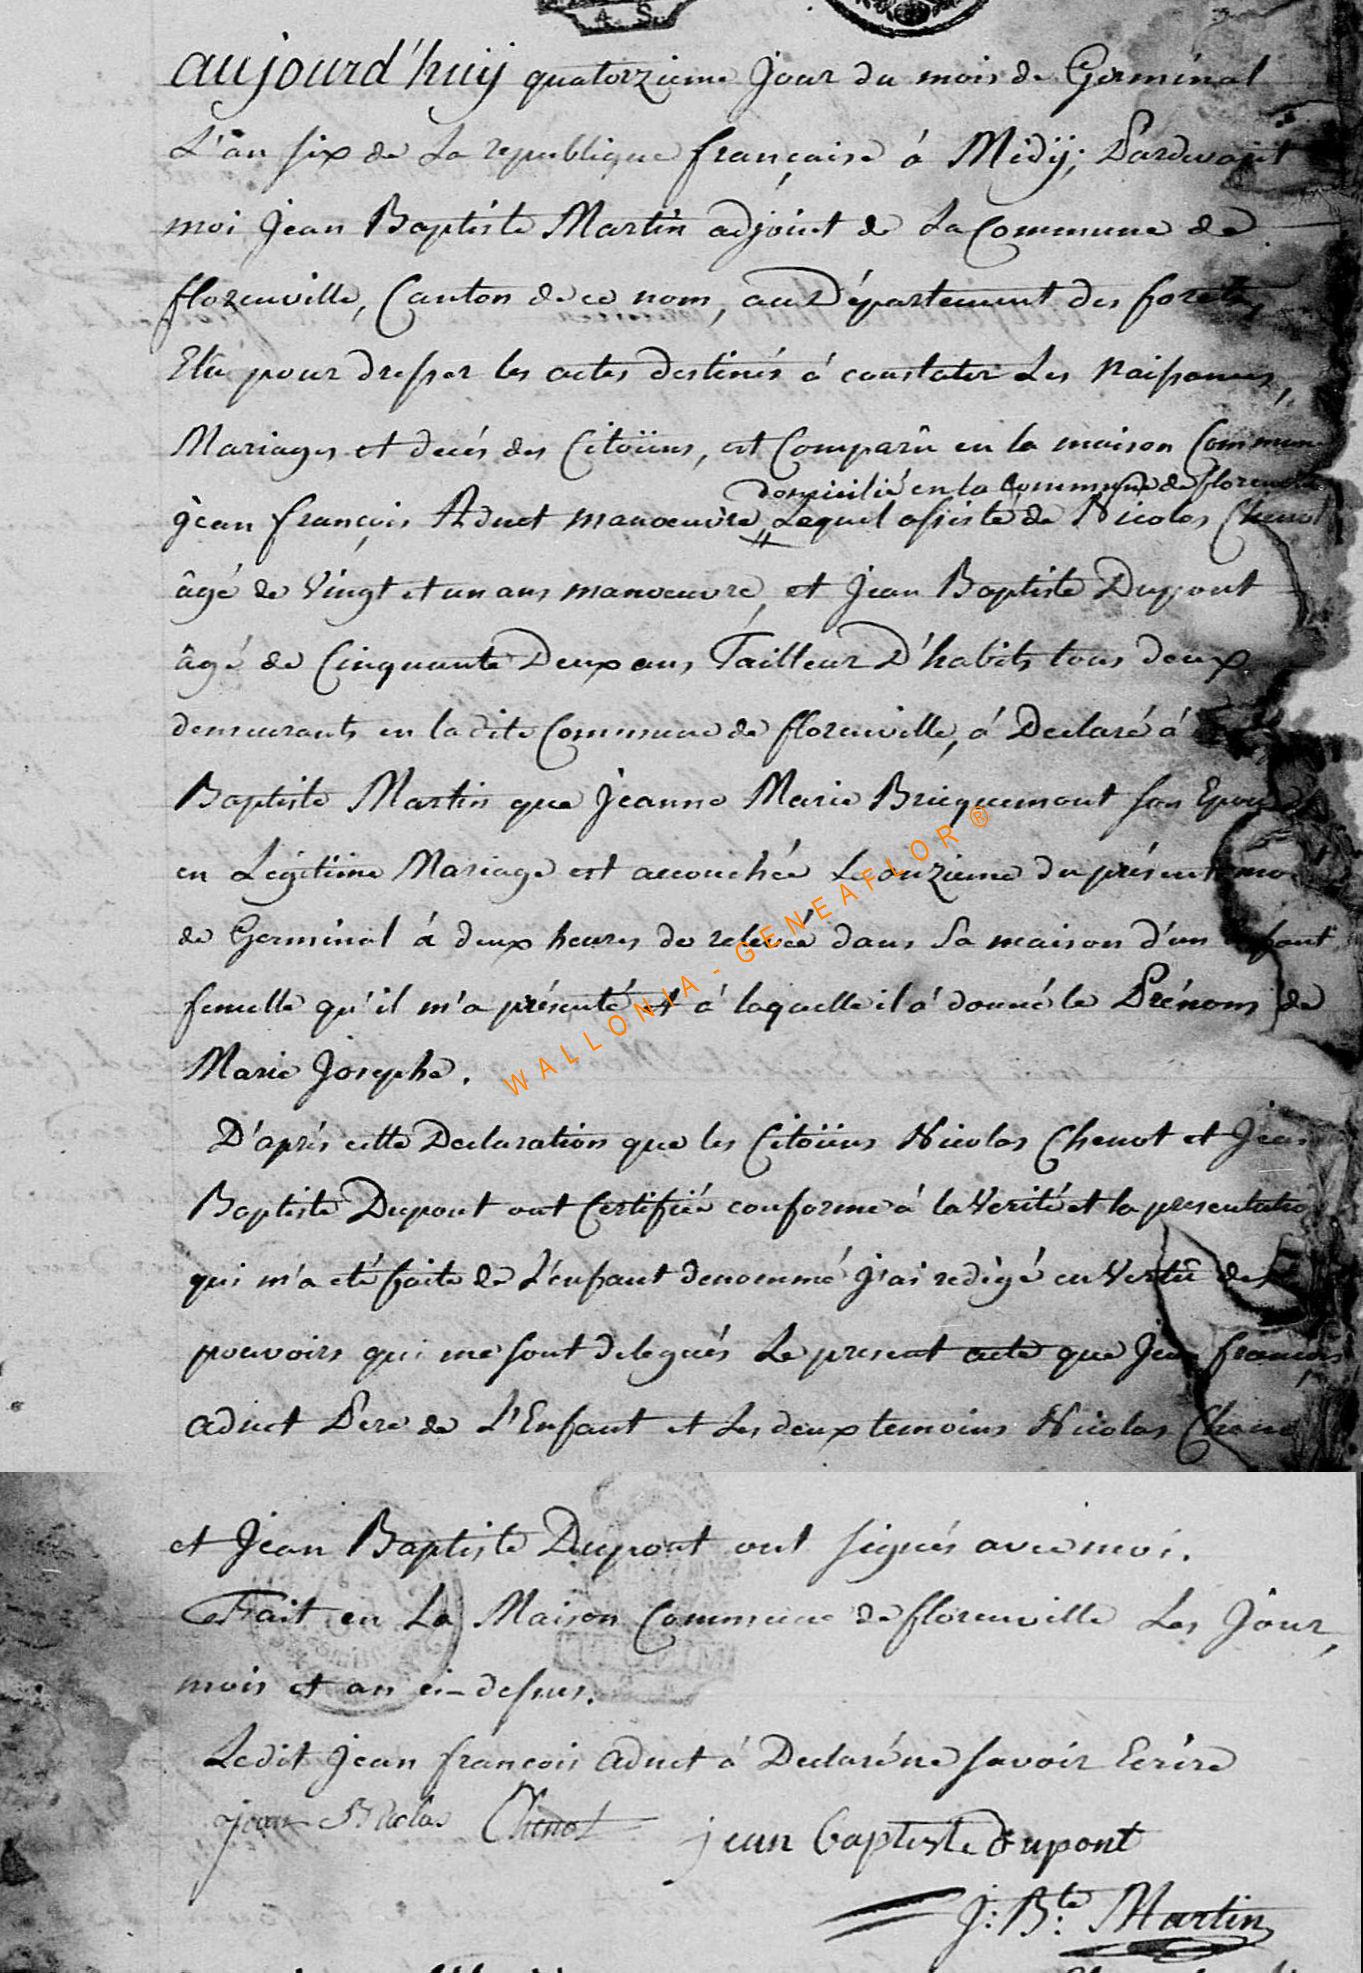 A. S.
aujourd'huÿ quatorzieme Jour du mois de Germinal
L'an six de la republique française à Midÿ; Pardevant
moi Jean Baptiste Martin adjoint de La Commune de
florenville, Canton de ce nom, au Département des forets,
Elu pour dresser les actes destinés à constater Les Naissances,
Mariages et decés des Citoÿens, est Comparû en la maison Commune
domicilié en la Commune de florenville
jean françois Aduet manoeuvre, Lequel assisté de Nicolas Chenot
âgé de Vingt et un ans manoeuvre, et Jean Baptiste Dupont
âgé de Cinquante Deux ans, Tailleur D'habits tous deux
demeurants en la dite Commune de florenville, à Declaré à
Baptiste Martin que Jeanne Marie Bricquemont son Epouse
en Legitime Mariage est accouchée Le onzieme du présent mois
de Germinal à deux heures de relevée dans Sa maison d'un Enfant
femelle qu'il m'a présenté et à laquelle il à donné le Prénoms de
Marie Josephe.
D'après cette Declaration que les Citoÿens Nicolas Chenot et Jean
Baptiste Dupont ont Certifiée conforme à la Verité et la presentation
qui m'a eté faite de L'enfant denommé J'ai redigé en Vertû des
pouvoirs qui me sont delegués Le present acte que Jean françois
aduet Pere de L'Enfant et Les deux temoins Nicolas Chenot
et Jean Baptiste Dupont ont signés avec moi.
Fait en La Maison Commune de florenville Les Jour,
mois et an ci-dessus.
Ledit Jean françois aduet à Declaré ne savoir Ecrire
jean Nicolas Chenot
jean baptiste dupont
J: B:te Martin
WALLONIA - GENEAFLOR ®